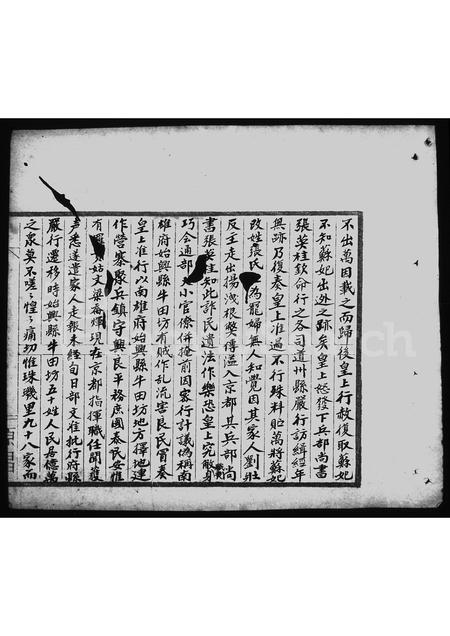 不出萬因載之而歸後皇上行敕復取蘇妃
不知蘇妃出迯之跡矣皇上怒發下兵部尚書
張英桂欽命行之各司道州縣嚴行訪緝經年
無跡乃復奏皇上准過不行殊料賍萬將蘇妃
改姓張氏 為寵婦無人知覺因其家人劉壯
反主走出揚洩根獘傳溢入京都其兵部尚
書張英桂知此詐民遺法作樂恐皇上究
巧会通部 小官僚併掩前因密行計議偽稱南
雄府始興縣牛田坊有賊作乱流害良民冒奏
皇上准行以南雄府始興縣牛田坊地方擇地建
作營寨聚兵鎮守興良平務庶國泰民安惟
有 姑丈梁喬輝現在京都指揮職任聞獲
声悉遂遣家人走報未經旬日部文准批行府縣
嚴行遷移時始興縣牛田坊五十姓人民居億萬
之衆莫不嗟嗟惶惶痛切惟珠璣里九十八家而